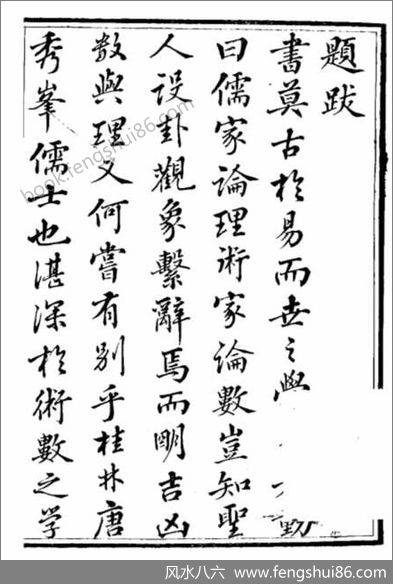 題跋
書莫古於易而世之動
曰儒家論理術家論數豈知聖
人設卦觀象繫辭焉而明吉凶
數與理又何嘗有別乎桂林唐
秀峯儒士也湛深於術數之学
book.fengshui86.com
风水八六 www.fengshui86.com